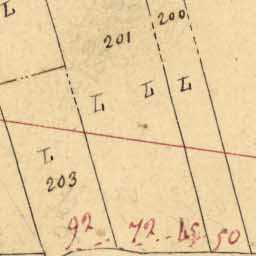 200
201
203
92 72 45 50